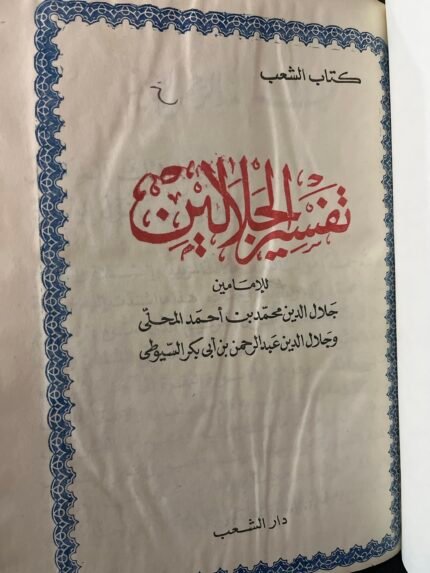 كتاب الشعب
تفسير الجلالين
للإمامين
جلال الدين محمد بن أحمد المحلّى
وجلال الدين عبد الرحمن بن أبى بكر السّيوطى
دار الشعب